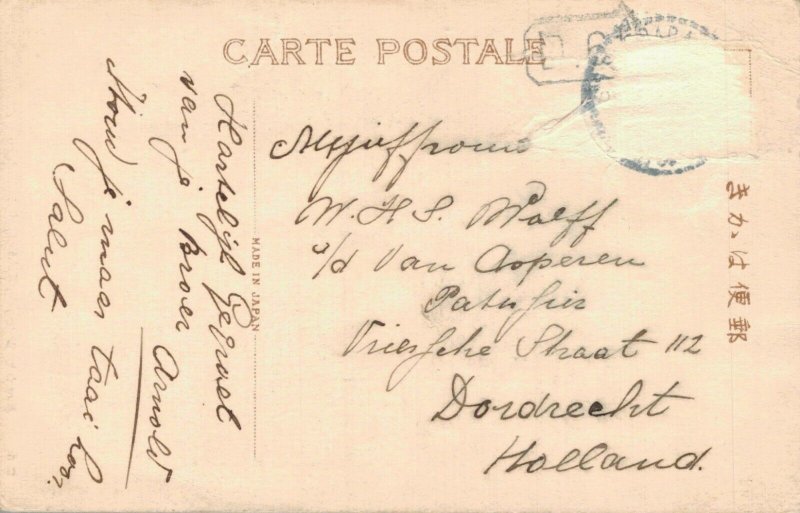 CARTE POSTALE
Hartelijk gegroet
van je Broer Arnold
Houd je maar taai hoor
Salut
MADE IN JAPAN
Mejuffrouw
W. H. S. Wolff
p/d Van Asperen
Patissier
Vriessche Straat 112
Dordrecht
Holland.
きかは便郵